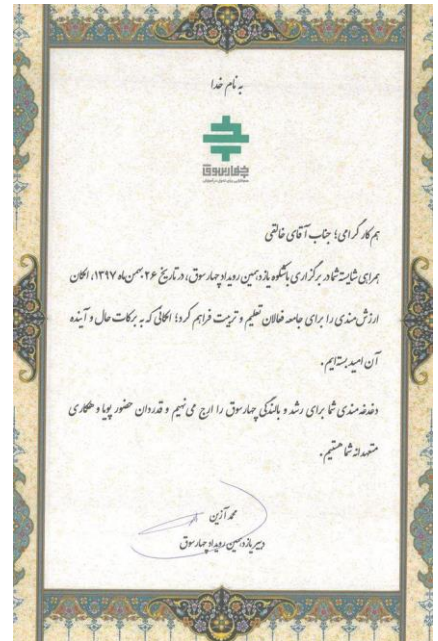 به نام خدا
چهارسوق
هم کار گرامی؛ جناب آقای خالقی
همراهی شایسته شما در برگزاری باشکوه یازدهمین رویداد چهارسوق، در تاریخ ۲۶ بهمن ماه ۱۳۹۷، امکان
ارزش مندی را برای جامعه فعالان تعلیم و تربیت فراهم کرد؛ امکانی که به برکات حال و آینده
آن امید بسته‌ایم.
دغدغه مندی شما برای رشد و بالندگی چهارسوق را ارج می نهیم و قدردان حضور پویا و همکاری
متعهدانه شما هستیم.
محمد آزین
دبیر یازدهمین رویداد چهارسوق